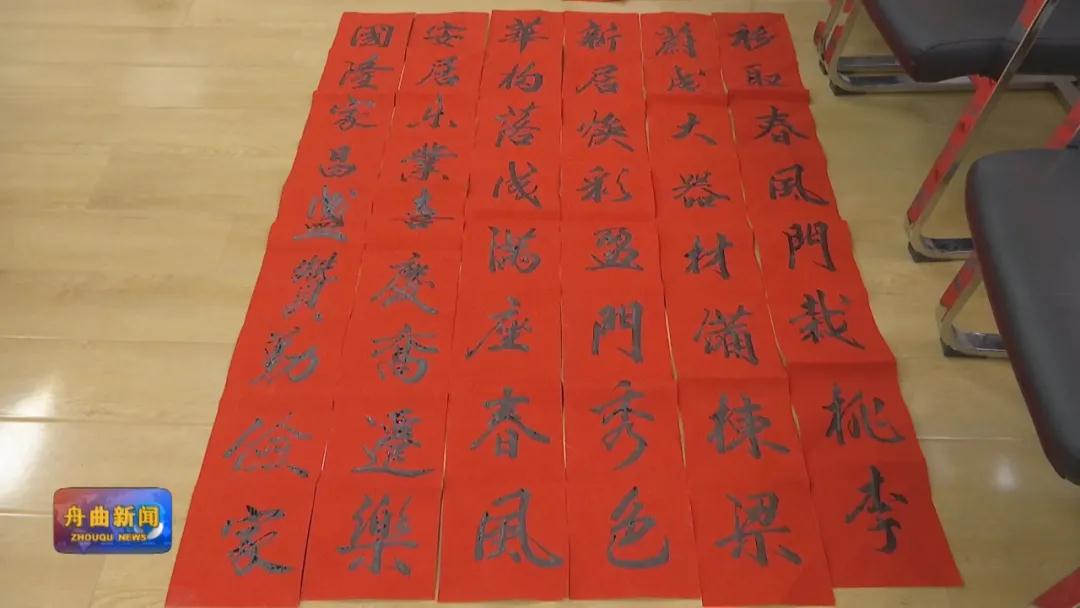 移取春風門栽桃李
蔚成大器材備棟梁
新居煥彩盈門秀色
華构落成满座春風
安居乐業喜慶喬遷樂
國隆家昌盛贊勤儉家
舟曲新闻
ZHOUQU NEWS